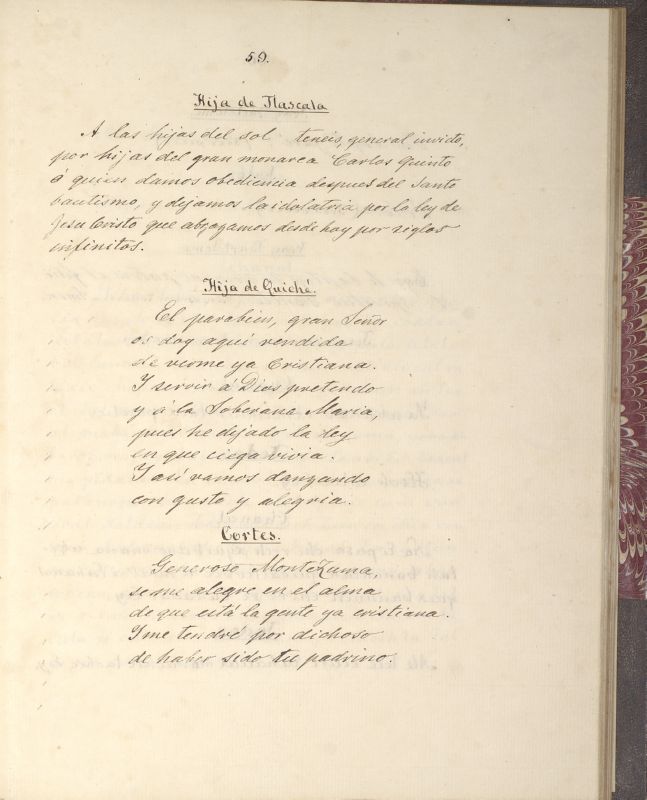 59.
Hija de Tlascala
A las hijas del sol teneis, general invicto,
por hijas del gran monarca Carlos Quinto
á quien damos obediencia despues del Santo
bautismo, y dejamos la idolatria por la ley de
Jesu Cristo que abrazamos desde hoy por siglos
infinitos.
Hija de Quiché.
El parabien, gran Señor
os doy aqui rendida
de verme ya Cristiana.
Y servir á Dios pretendo
y á la Soberana Maria,
pues he dejado la ley
en que ciega vivia.
Y asi vamos danzando
con gusto y alegria.
Cortes.
Generoso MonteZuma,
se me alegre en el alma
de que está la gente ya cristiana.
Y me tendré por dichoso
de haber sido tu padrino.